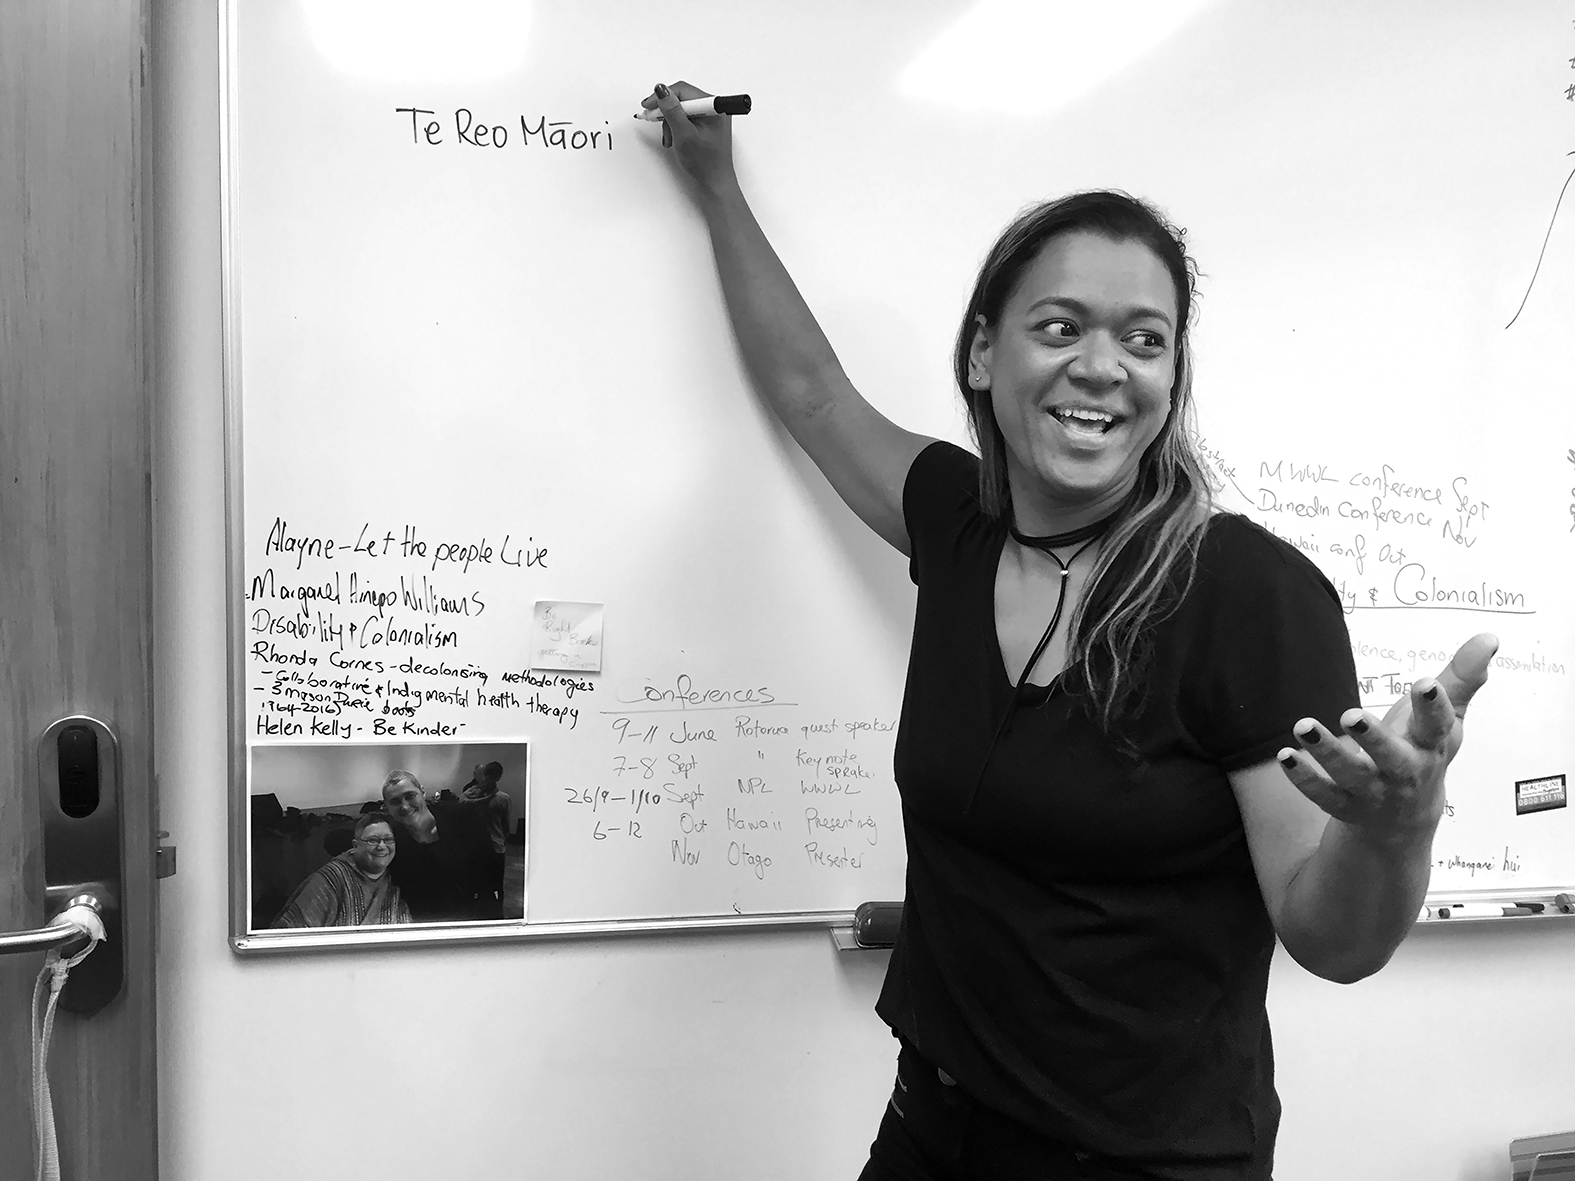 Te Reo Māori
Alayne - Let the people Live
Margaret Hinepo Williams
Disability & Colonialism
Rhonda Cornes - decolonising methodologies
- Collaborative & Indig mental health therapy
- 3 mason Durie books
1964-2016
Helen Kelly - Be Kinder
Conferences
9-11 June Rotorua guest speaker
7-8 Sept " Keynote
26/9-1/10 Sept NPL WWWL
6-12 Oct Hawaii Presenting
Nov Otago Presenter
Abstract
MWWL conference Sept
Dunedin Conference Nov
conf Oct
& Colonialism
assimilation
HEALTHLINE
0800 611 116
+ whanganei hui